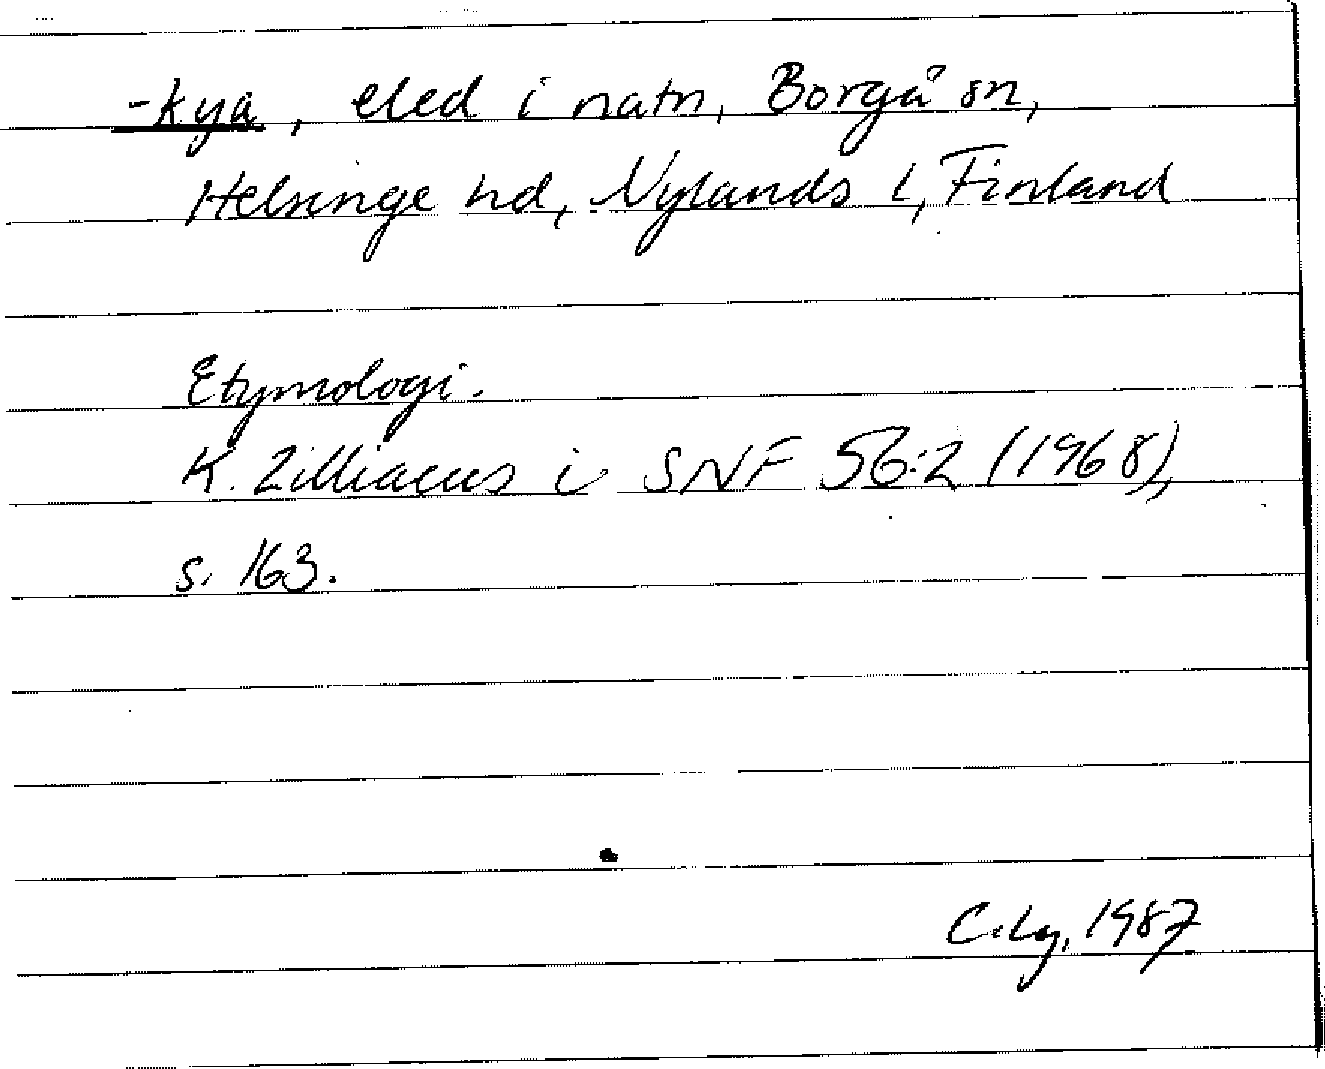 -kya, eled i natn, Borgå sn,
Helsinge hd, Nylands l, Finland
Etymologi.
K. Zilliacus i SNF 56:2 (1968),
s. 163.
C.Lg, 1987